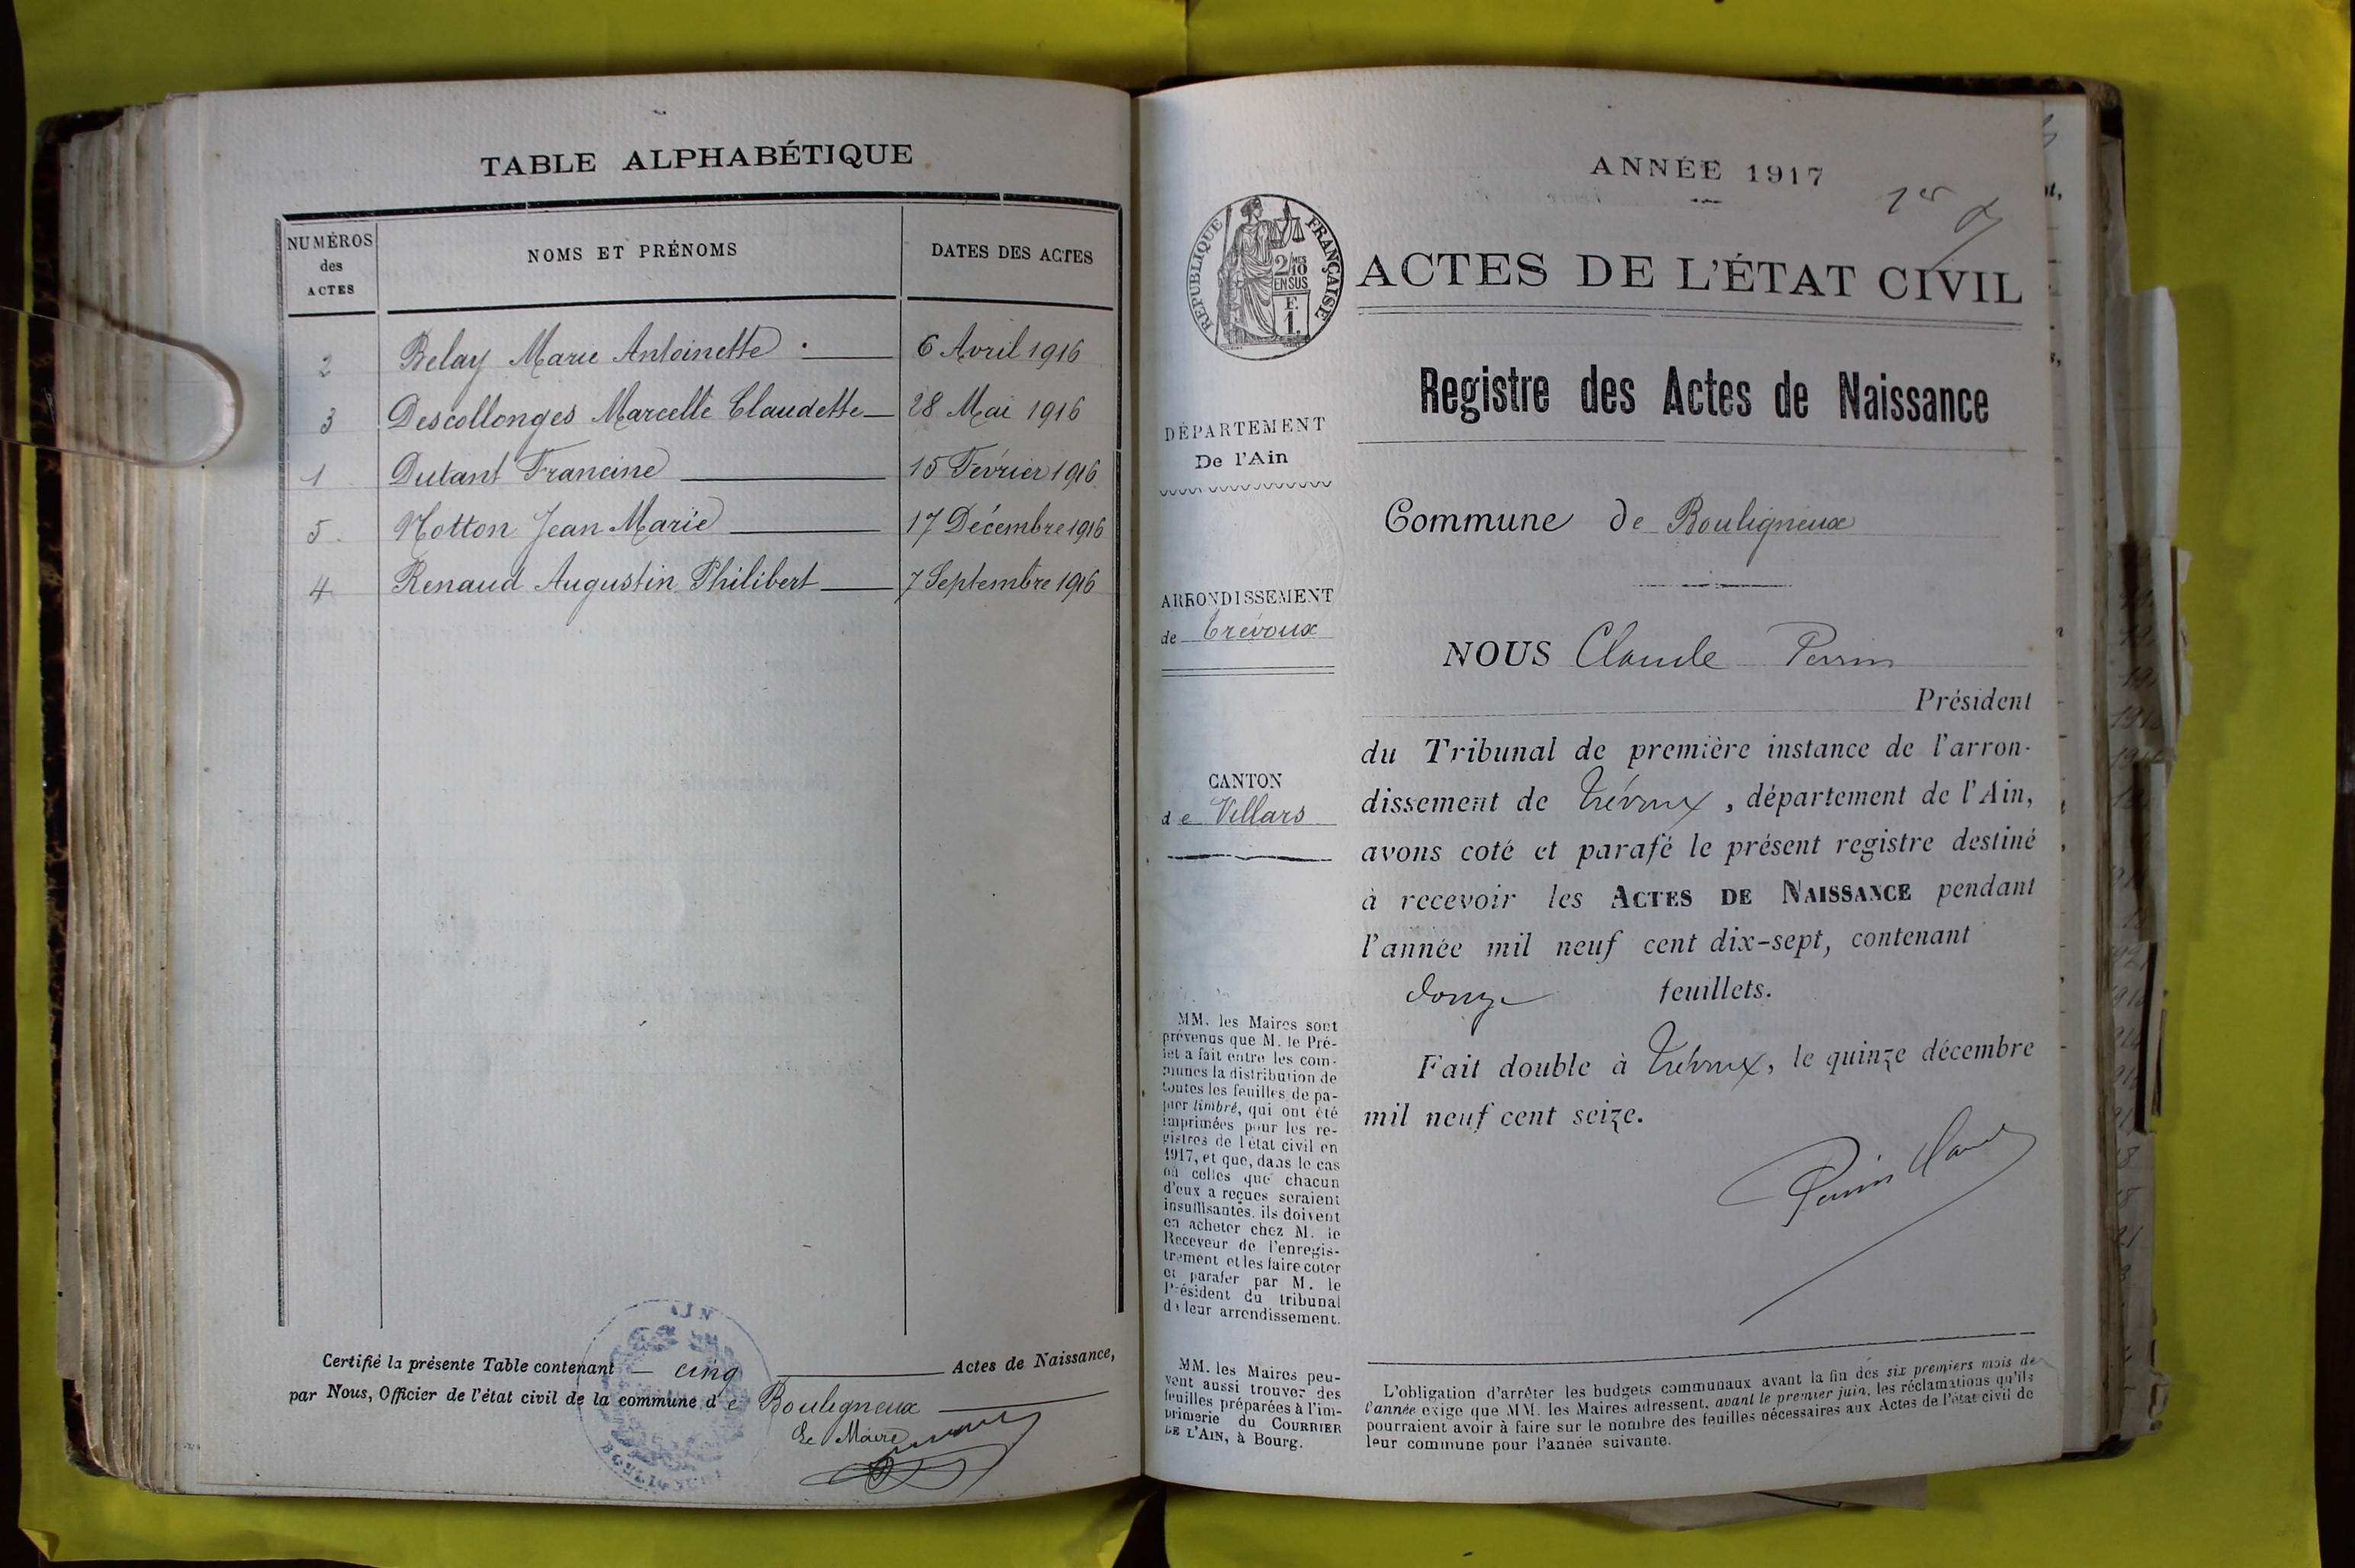 TABLE ALPHABÉTIQUE
NUMÉROS
des
ACTES
NOMS ET PRÉNOMS
DATES DES ACTES
2 Belay Marie Antoinette 6 Avril 1916
3 Descollonges Marcelle Claudette 28 Mai 1916
1 Dutant Francine 15 Février 1916
5 Notton Jean Marie 17 Décembre 1916
4 Renaud Augustin Philibert 7 Septembre 1916
Certifié la présente Table contenant cinq Actes de Naissance,
par Nous, Officier de l'état civil de la commune de Bouligneux
Le Maire
AIN
BOULIGNEUX
ANNÉE 1917
1er
RÉPUBLIQUE FRANÇAISE
2/10 MES
EN SUS
F.
1.
ACTES DE L'ÉTAT CIVIL
Registre des Actes de Naissance
DÉPARTEMENT
De l'Ain
Commune de Bouligneux
ARRONDISSEMENT
de Trévoux
CANTON
de Villars
NOUS Claude Perrin
Président
du Tribunal de première instance de l'arron-
dissement de Trévoux, département de l'Ain,
avons coté et parafé le présent registre destiné
à recevoir les ACTES DE NAISSANCE pendant
l'année mil neuf cent dix-sept, contenant
douze feuillets.
Fait double à Trévoux, le quinze décembre
mil neuf cent seize.
Perrin Claude
MM. les Maires sont
prévenus que M. le Pré-
fet a fait entre les com-
munes la distribution de
toutes les feuilles de pa-
pier timbré, qui ont été
imprimées pour les re-
gistres de l'état civil en
1917, et que, dans le cas
où celles que chacun
d'eux a reçues seraient
insuffisantes, ils doivent
en acheter chez M. le
Receveur de l'enregis-
trement et les faire coter
et parafer par M. le
Président du tribunal
de leur arrondissement.
MM. les Maires peu-
vent aussi trouver des
feuilles préparées à l'im-
primerie du COURRIER
DE L'AIN, à Bourg.
L'obligation d'arrêter les budgets communaux avant la fin des six premiers mois de
l'année exige que MM. les Maires adressent, avant le premier juin, les réclamations qu'ils
pourraient avoir à faire sur le nombre des feuilles nécessaires aux Actes de l'état civil de
leur commune pour l'année suivante.